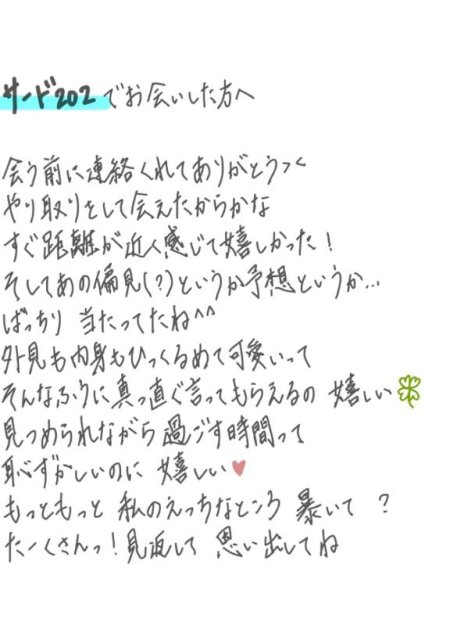 サード202でお会いした方へ
会う前に連絡くれてありがとう><
やり取りをして会えたからかな
すぐ距離が近く感じて嬉しかった！
そしてあの偏見(?)というか予想というか…
ばっちり 当たってたね^^
外見も内身もひっくるめて可愛いって
そんなふうに真っ直ぐ言ってもらえるの 嬉しい
見つめられながら 過ごす時間って
恥ずかしいのに 嬉しい
もっともっと 私のえっちなところ 暴いて ?
たーくさんっ！見返して 思い出してね